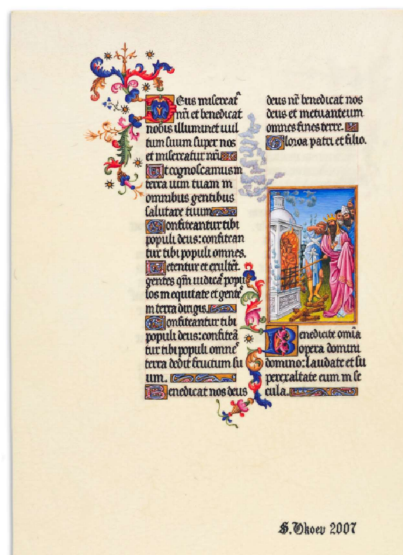 Deus misereat͛
nr̄i et benedicat
nobis illuminet uul
tum suum super nos
et misereatur nr̄i
Ut cognoscamus in
terra uiam tuam in
omnibus gentibus
salutare tuum
Confiteantur tibi
populi deus: confitean
tur tibi populi omnes.
Letentur et exultēt
gentes qm̄ iudicas popu
los in equitate et gentes
in terra dirigis.
Confiteantur tibi
populi deus: confiteā
tur tibi populi omnes
terra dedit fructum su
um.
Benedicat nos deus
deus nr̄ benedicat nos
deus et metuant eum
omnes fines terre.
Gloria patri et filio.
Benedicite omīa
opera domini
domino: laudate et su
perexaltate eum in se
cula.
2007